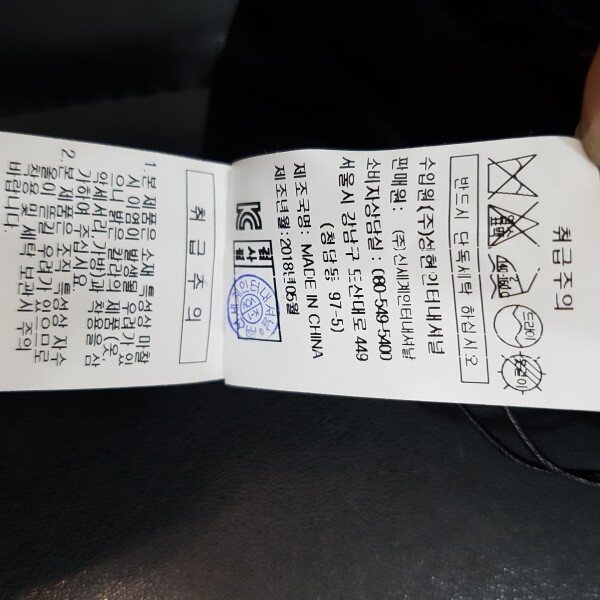 취급주의
드라이
옷걸이
반드시 단독세탁 하십시오
수입원 (주)신현인터내셔널
판매원 : (주)신세계인터내셔날
소비자상담실 : 080-549-5400
서울시 강남구 도산대로 449
(청담동; 97-5)
제조국명 : MADE IN CHINA
제조년월 : 2018년 05월
검사필
취 급 주 의
1. 본 제품은 소재 특성상 마찰
시 이염이 발생될 우려가 있
으니 밝은 컬러의 제품(옷,
악세서리,가방)과 착용을 삼
가하여 주십시오.
2. 본 제품은 조직 특성상 자수
올이 뜯길 우려가 있으므로
착용 및 세탁 보관시 주의
바랍니다.